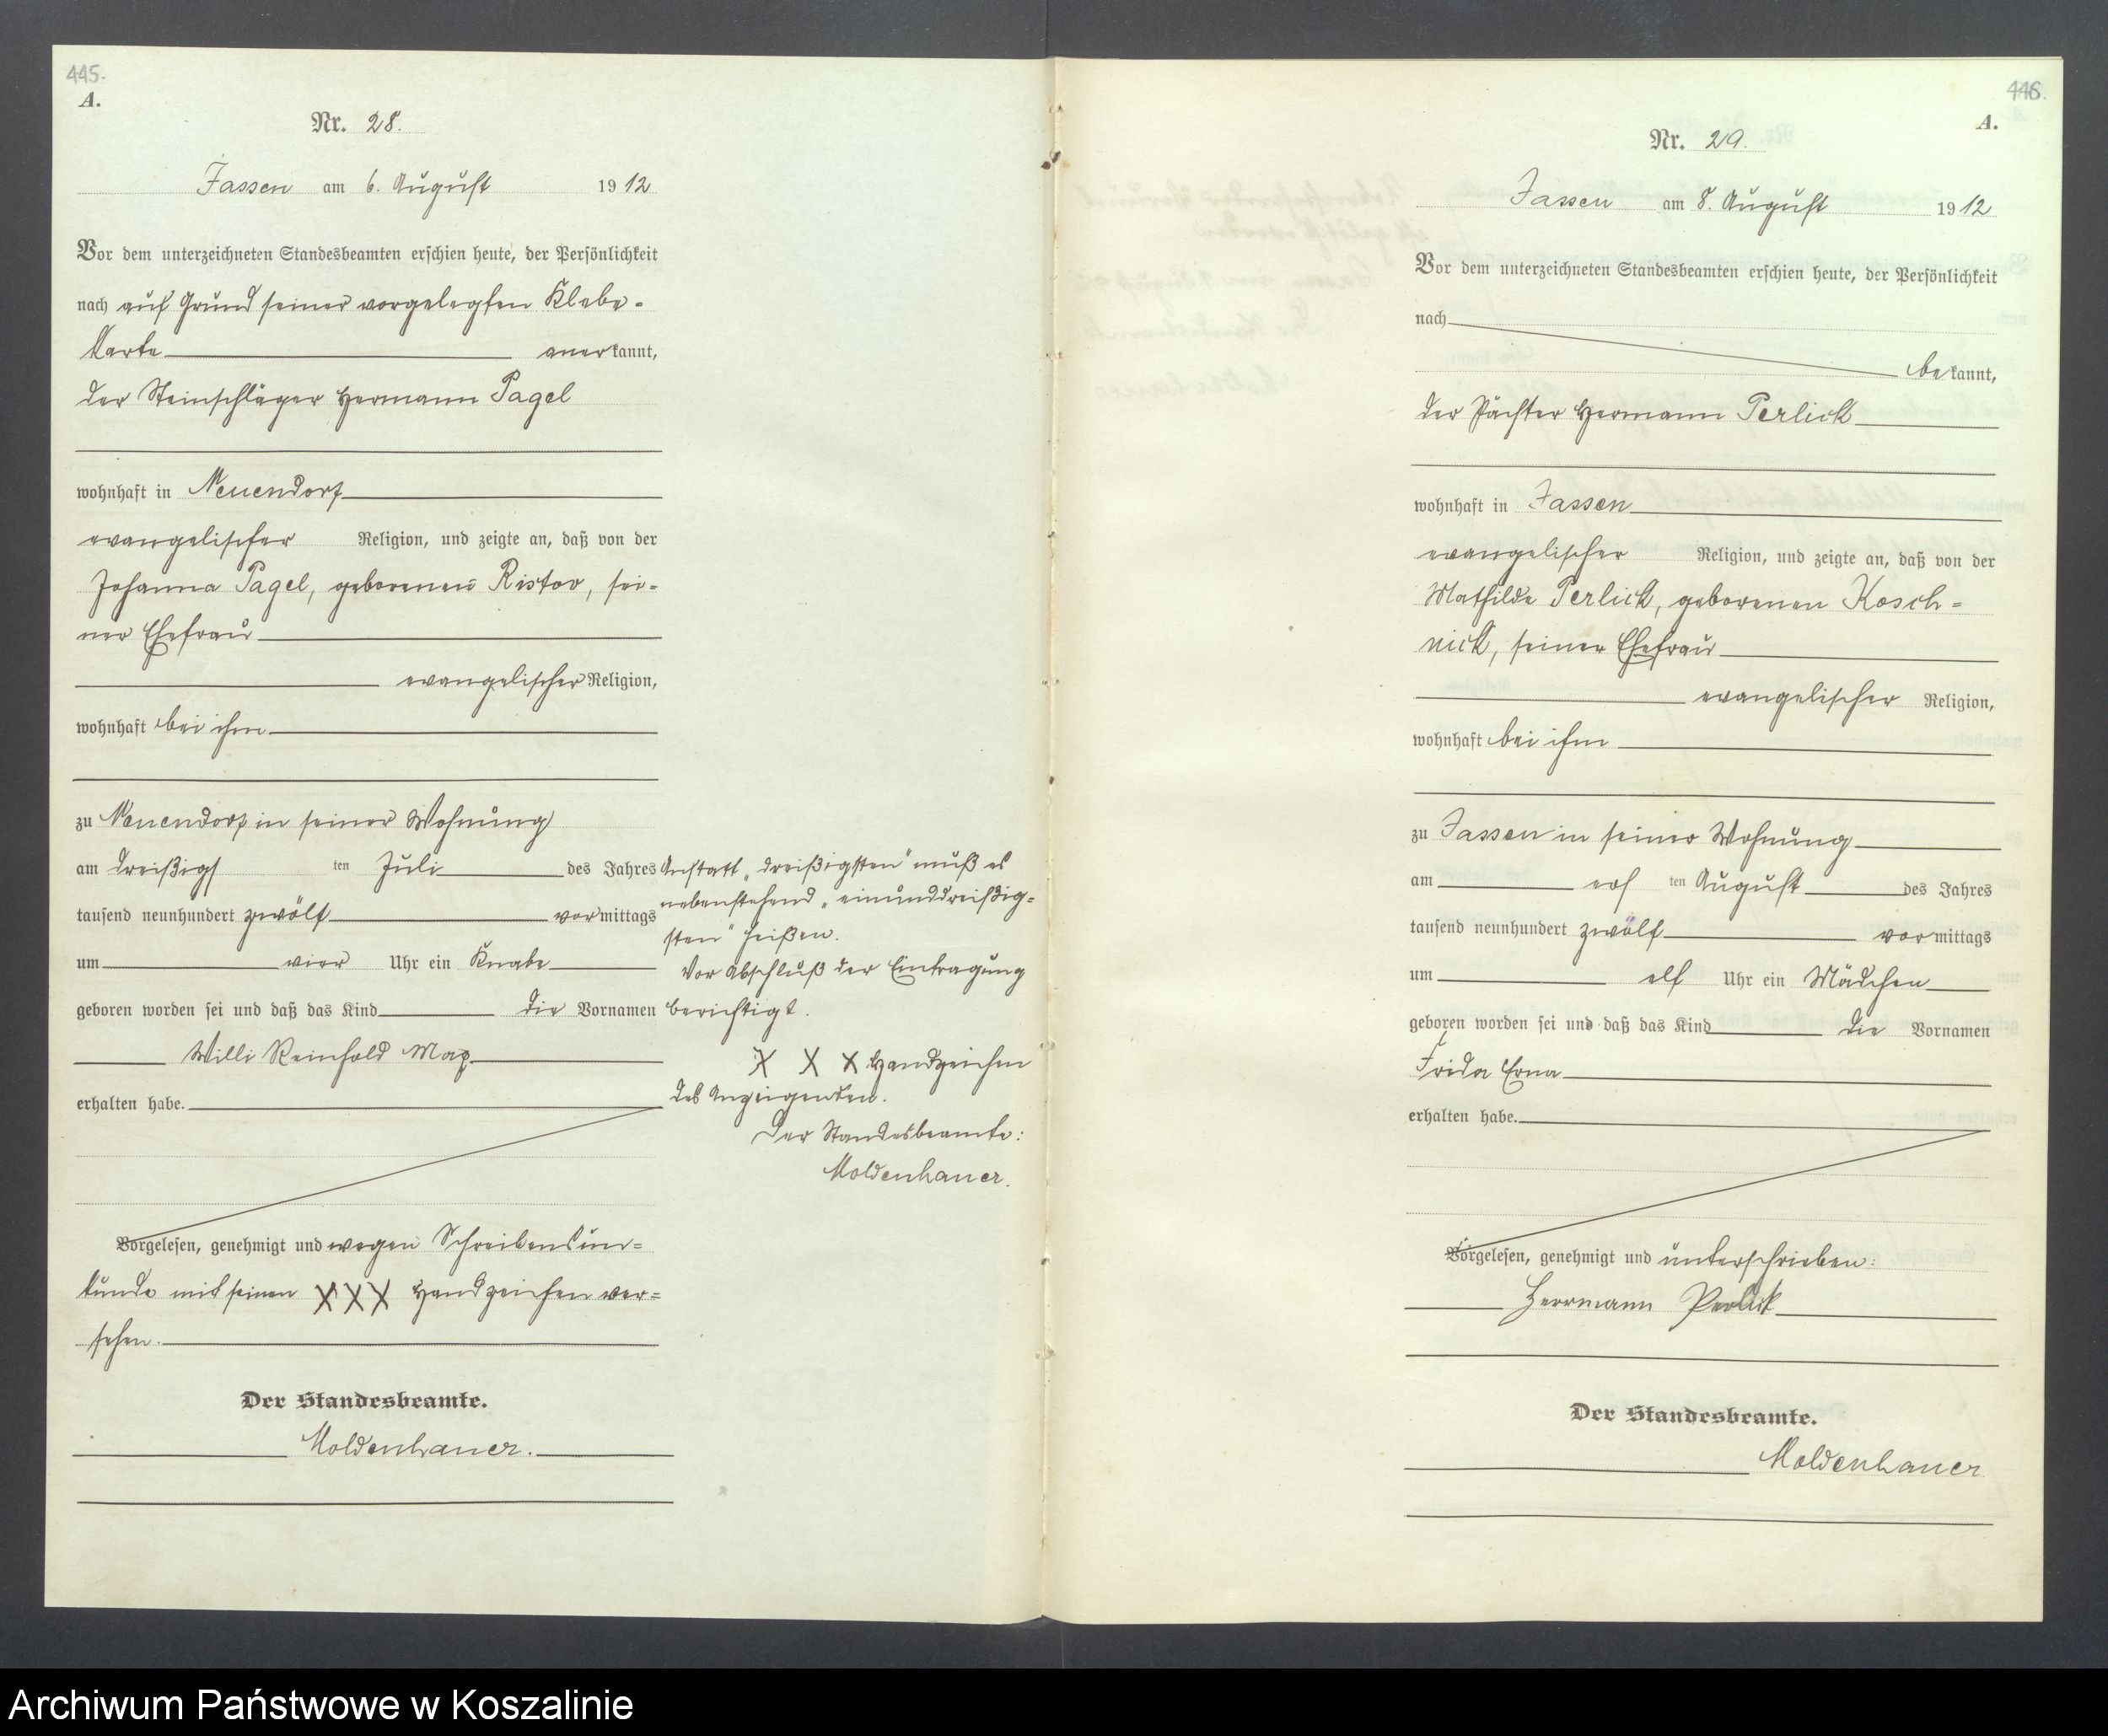 445.
A.
Nr. 28.
Jassen am 6. August 1912
Vor dem unterzeichneten Standesbeamten erschien heute, der Persönlichkeit
nach auf Grund seiner vorgelegten Klebe-
karte anerkannt,
der Steinschläger Hermann Pagel
wohnhaft in Neuendorf
evangelischer Religion, und zeigte an, daß von der
Johanna Pagel, geborenen Ristov, sei-
ner Ehefrau
evangelischer Religion,
wohnhaft bei ihm
zu Neuendorf in seiner Wohnung
am dreißigs ten Juli des Jahres
tausend neunhundert zwölf vormittags
um vier Uhr ein Knabe
geboren worden sei und daß das Kind die Vornamen
Willi Reinhold Max
erhalten habe.
Vorgelesen, genehmigt und wegen Schreibensun-
kunde mit seinen XXX Handzeichen ver-
sehen.
Der Standesbeamte.
Moldenhauer.
Anstatt „dreißigsten" muß es
nebenstehend „einunddreißig-
sten" heißen.
Vor Abschluß der Eintragung
berichtigt.
X X X Handzeichen
des Anzeigenden.
Der Standesbeamte:
Moldenhauer.
446.
A.
Nr. 29.
Jassen am 8. August 1912
Vor dem unterzeichneten Standesbeamten erschien heute, der Persönlichkeit
nach
bekannt,
der Pächter Hermann Perlick
wohnhaft in Jassen
evangelischer Religion, und zeigte an, daß von der
Mathilde Perlick, geborenen Kosch-
nick, seiner Ehefrau
evangelischer Religion,
wohnhaft bei ihm
zu Jassen in seiner Wohnung
am ers ten August des Jahres
tausend neunhundert zwölf vormittags
um elf Uhr ein Mädchen
geboren worden sei und daß das Kind die Vornamen
Frida Erna
erhalten habe.
Vorgelesen, genehmigt und unterschrieben:
Herrmann Perlick
Der Standesbeamte.
Moldenhauer
Archiwum Państwowe w Koszalinie